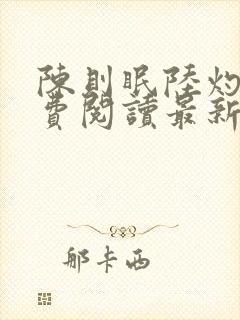 陳則眠陸灼
費閱讀最新
那卡西